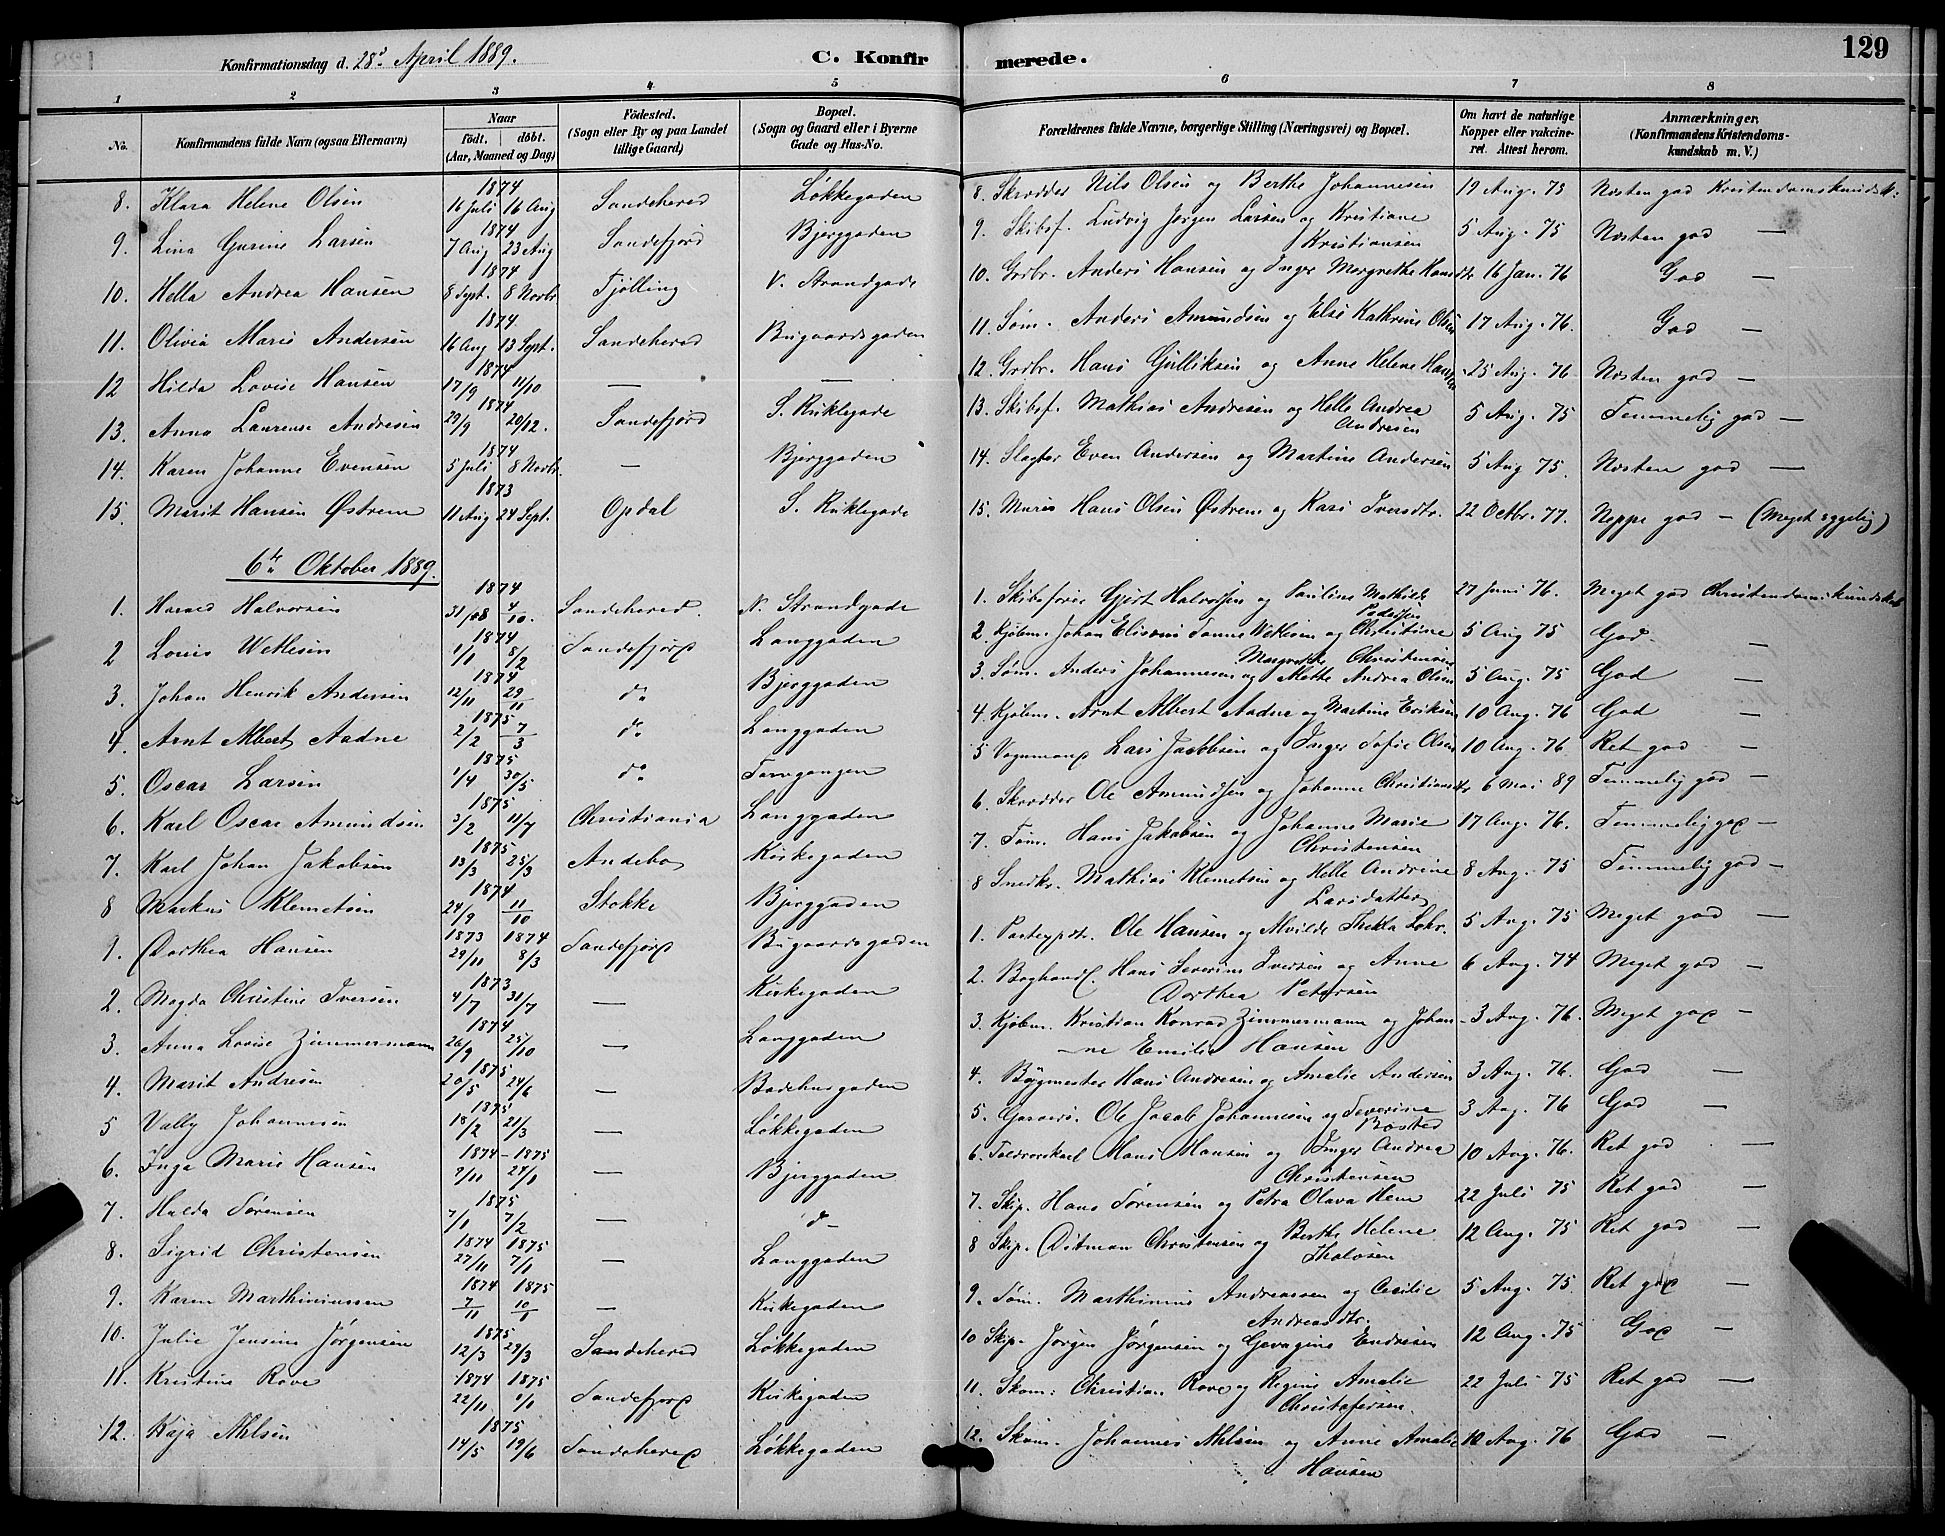 Konfirmationsdag d. 28de April 1889. C. Konfirmerede. 129
1 2 3 4 5 6 7 8
No. Konfirmandens fulde Navn (ogsaa Efternavn) Naar født, døbt. (Aar, Maaned og Dag) Födested. (Sogn eller By og paa Landet tillige Gaard) Bopæl. (Sogn og Gaard eller i Byerne Gade og Hus-No. Forældrenes fulde Navne, borgerlige Stilling (Næringsvei) og Bopæl. Om havt de naturlige Kopper eller vakcineret. Attest herom. Anmærkninger. (Konfirmandens Kristendomskundskab m. V.)
8. Klara Helene Olsen 1874 16 Juli 16 Aug Sandeherred Løkkegaden 8. Skrædder Nils Olsen og Berthe Johannesen 19 Aug. 75 Næsten god Kristendomskundsk:
9. Lina Gurine Larsen 1874 7 Aug 23 Aug Sandefjord Bjerggaden 9. Skibsf. Ludvig Jørgen Larsen og Kristiane Kristiansen 5 Aug. 75 Næsten god —
10. Hella Andrea Hansen 1874 8 Sept. 8 Novbr Tjølling V. Strandgade 10. Grdbr. Anders Hansen og Inger Margrethe Hansdtr 16 Jan. 76 God —
11. Olivia Marie Andersen 1874 16 Aug 13 Sept. Sandeherred Bugaardsgaden 11. Søm. Anders Amundsen og Else Kathrine Olsen 17 Aug. 76. God —
12 Hilda Lovise Hansen 1874 17/9 11/10 — — 12. Grdbr. Hans Gulliksen og Anne Helene Hansen 25 Aug. 76 Næsten god —
13. Anna Laurense Andresen 1874 29/9 20/12. Sandefjord S. Kirkegade 13. Skibsf. Mathias Andresen og Helle Andrea Andresen 5 Aug. 75 Temmelig god —
14. Karen Johanne Evensen 1874 5 Juli 8 Novbr. — Bjerggaden 14. Slagter Even Andersen og Martine Andersen 5 Aug 75. Næsten god —
15. Marit Hansen Østrem 1873 11 Aug 24 Sept. Opdal S. Kirkegade 15. Murer Hans Olsen Østrem og Kari Iversdtr. 22 Octbr. 77. Neppe god — (Meget sygelig)
6te Oktober 1889.
1. Harald Halvorsen 1874 31/08 4/10. Sandeherred. N. Strandgade 1. Skibsfører Gjert Halvorsen og Pauline Mathilde Pedersen 27 Juni 76. Meget god Christendomskundskab
2 Louis Wetlesen 1874 1/1 8/2 Sandefjord Langgaden 2. Kjøbm. Johan Elisæus Tanne Wetlesen og Christine Margrethe Christensen 5 Aug 75 God. —
3. Johan Henrik Andersen 1874 12/11 29/11 do Bjerggaden 3. Søm. Anders Johannesen og Mette Andrea Olsen 5 Aug. 75 God —
4. Arnt Albert Aadne 1875 2/2 7/3 do Langgaden 4. Kjøbm. Arnt Albert Aadne og Martine Eriksen 10 Aug. 76 God —
5. Oscar Larsen 1875 1/4 30/5 do Torvgangen 5 Vognmand Lars Jacobsen og Inger Sofie Olsen 10 Aug. 76 Ret god —
6. Karl Oscar Amundsen 1875 3/2 11/7 Christiania Langgaden 6. Skrædder Ole Amundsen og Johanne Christiansdtr 6 Mai 89 Temmelig god —
7. Karl Johan Jakobsen 1875 13/3 25/3 Andebo Kirkegaden 7. Tøm. Hans Jakobsen og Johanne Marie Christensen 17 Aug. 76. Temmelig god —
8 Markus Klemetsen 1874 24/9 11/10 Stokke Bjerggaden 8 Snedkr. Mathias Klemetsen og Helle Andrine Larsdatter 8 Aug. 75 Temmelig god —
1. Dorthea Hansen 1873 1874 29/11 8/3 Sandefjord Bugaardsgaden 1. Ole Hansen og Alvilde Thekla Lohr. 5 Aug. 75 Meget god —
2. Magda Christine Iversen 1873 4/7 31/7 — Kirkegaden 2. Boghandl. Hans Severin Iversen og Anne Dorthea Petersen 6 Aug. 74 Meget god —
3. Anna Lovise Zimmermann 1874 26/9 25/10 — Langgaden 3. Kjøbm. Kristian Konrad Zimmermann og Johanne Emilie Hansen 3 Aug. 76. Meget god —
4. Marit Andresen 1875 20/5 24/6 — Badehusgaden 4. Bygmester Hans Andresen og Amalie Andersen 3 Aug. 76. God —
5 Vally Johannesen 1875 18/2 21/3 — Løkkegaden 5. Garveri. Ole Jacob Johannesen og Severine Bøsted 3 Aug. 76 God —
6. Inga Marie Hansen 1874 – 1875 9/11 24/1 — Bjerggaden 6. Toldroerskarl Hans Hansen og Inger Andrea Christensen 10 Aug. 76. Ret god —
7. Hulda Sørensen 1875 7/1 7/2 — d— 7. Skip. Hans Sørensen og Petra Olava Hem 22 Juli 75 Ret god —
8. Sigrid Christensen 1874 1875 27/11 7/1 — Langgaden 8 Skip. Ditman Christensen og Berthe Helene Thalosen 12 Aug. 75 Ret god —
9. Karen Marthiniussen 1874 1875 7/11 10/1 — Kirkegaden 9. Tøm. Marthinius Andreassen og Cecilie Andreasdtr. 5 Aug. 75. Ret god —
10. Julie Jensine Jørgensen 1875 12/3 29/3 Sandeherred Løkkegaden 10 Skip. Jørgen Jørgensen og Gevagine Endresen 12 Aug. 75 God —
11. Kristine Rove 1874 1875 22/11 Sandefjord Kirkegaden 11. Skom: Christian Rove og Regine Amalie Christofersen. 22 Juli 75 Ret god —
12. Kaja Ahlsen 1875 14/5 19/6 Sandeherred Løkkegaden 12. Skom. Johannes Ahlsen og Anne Amalie Hansen 10 Aug. 76 God —